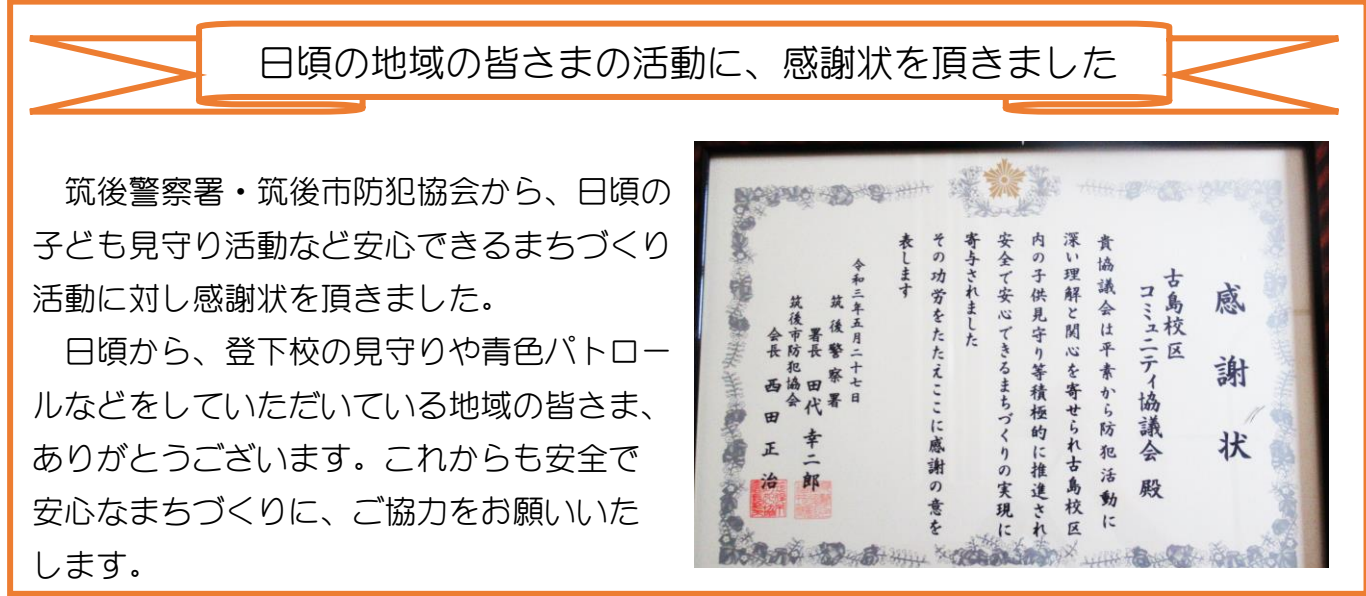 日頃の地域の皆さまの活動に、感謝状を頂きました
筑後警察署・筑後市防犯協会から、日頃の
子ども見守り活動など安心できるまちづくり
活動に対し感謝状を頂きました。
日頃から、登下校の見守りや青色パトロー
ルなどをしていただいている地域の皆さま、
ありがとうございます。これからも安全で
安心なまちづくりに、ご協力をお願いいた
します。
感謝状
古島校区
コミュニティ協議会 殿
貴協議会は平素から防犯活動に
深い理解と関心を寄せられ古島校区
内の子供見守り等積極的に推進され
安全で安心できるまちづくりの実現に
寄与されました
その功労をたたえここに感謝の意を
表します
令和三年五月二十七日
筑後警察署
署長 田代幸二郎
筑後市防犯協会
会長 西田正治